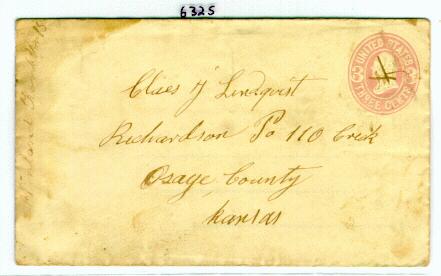 6325
UNITED STATES
THREE CENTS
Claes J Lindquist
Richardson Po 110 Crick
Osage County
Kansas